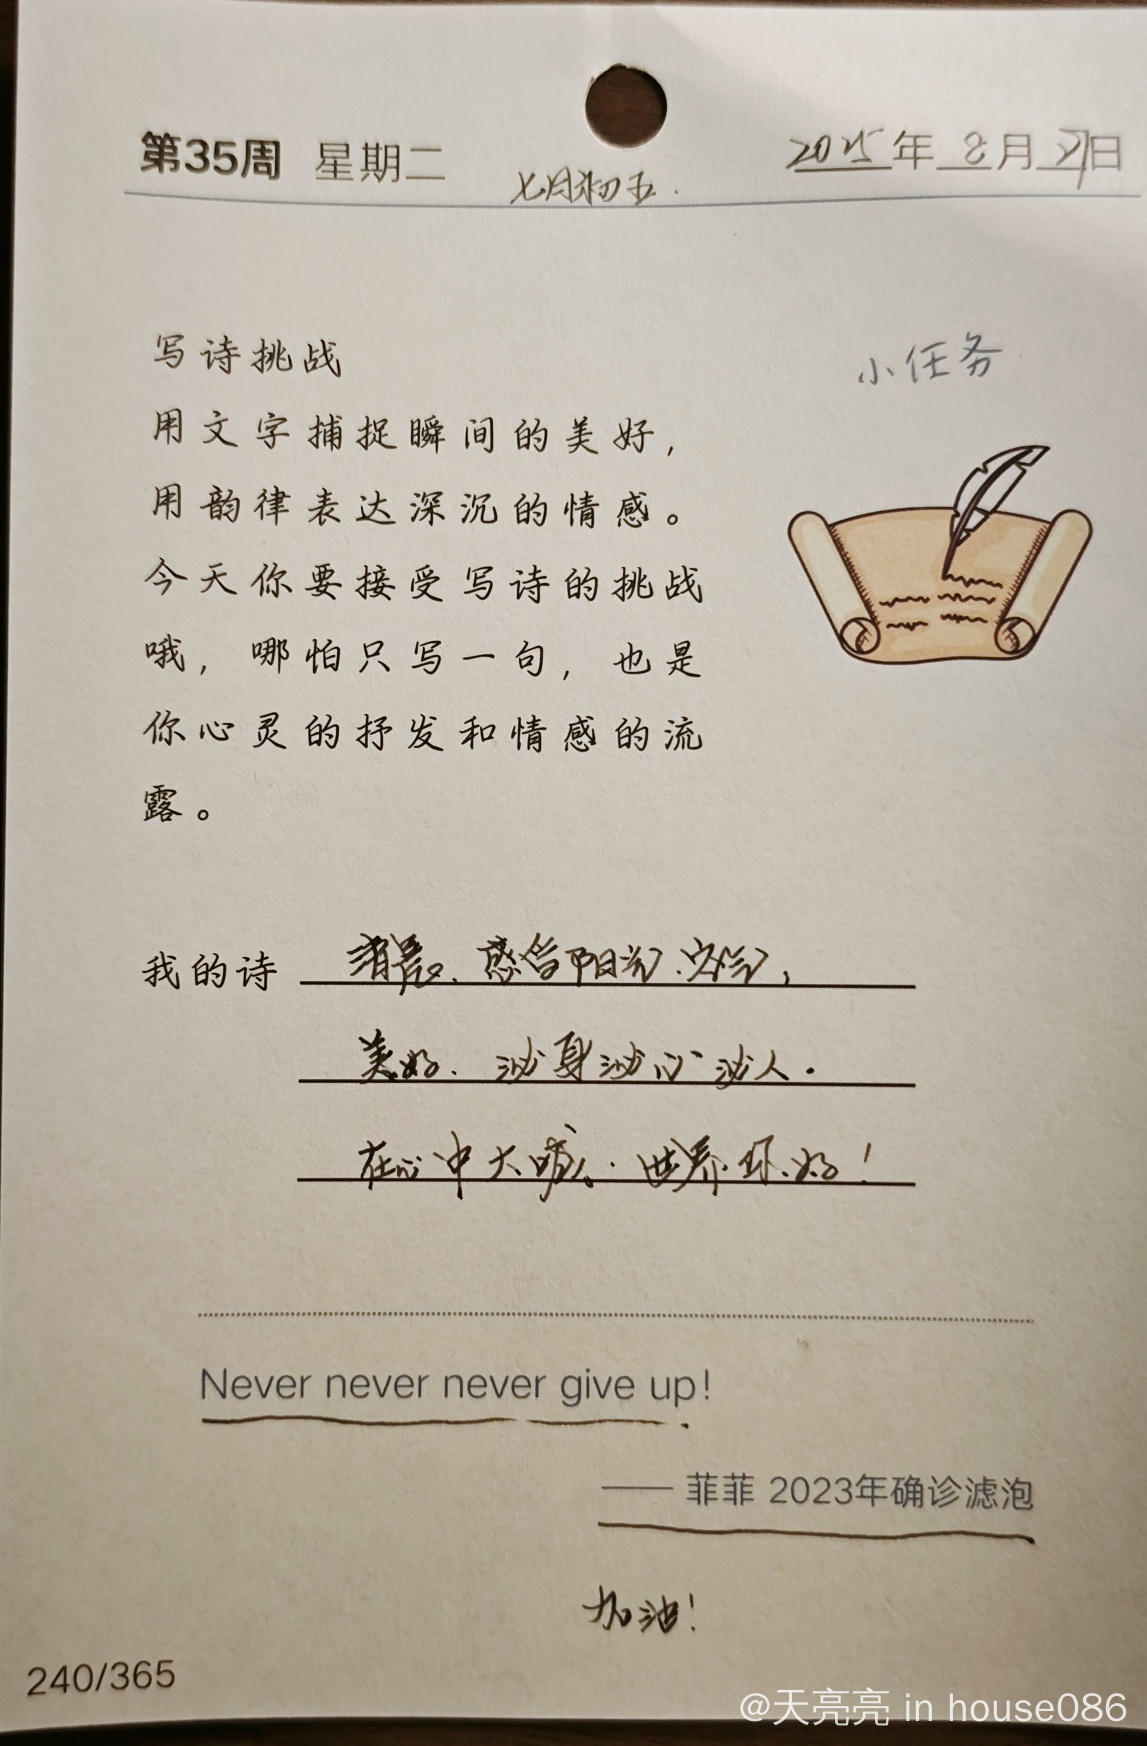 第35周 星期二
七月初五.
2025年 8月 27日
写诗挑战
小任务
用文字捕捉瞬间的美好，
用韵律表达深沉的情感。
今天你要接受写诗的挑战
哦，哪怕只写一句，也是
你心灵的抒发和情感的流
露。
我的诗 清晨. 感恩阳光.空气,
美好. 身 心 人.
在心中大喊. 世界 你好！
Never never never give up!
—— 菲菲 2023年确诊滤泡
加油！
240/365
@天亮亮 in house086